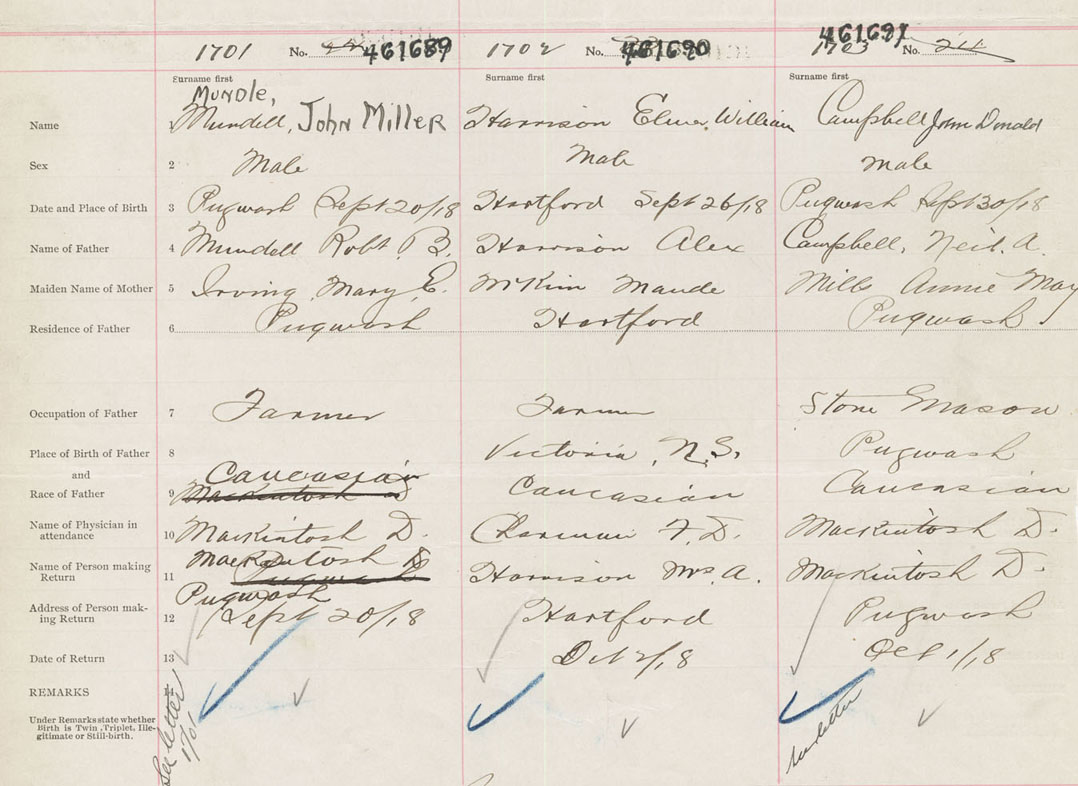 1701 No. 461689 1702 No. 461690 461691 1703 No. 24
Surname first Surname first Surname first
Mundle,
Name 1 Mundell, John Miller Harrison Elmer William Campbell John Donald
Sex 2 Male Male Male
Date and Place of Birth 3 Pugwash Sept 20/18 Hartford Sept 26/18 Pugwash Sept 30/18
Name of Father 4 Mundell Robt B. Harrison Alex Campbell, Neil A.
Maiden Name of Mother 5 Irving Mary E. McKim Maude Mills Annie May
Residence of Father 6 Pugwash Hartford Pugwash
Occupation of Father 7 Farmer Farmer Stone Mason
Place of Birth of Father 8 Victoria, N.S. Pugwash
and Caucasian
Race of Father 9 Mackintosh D Caucasian Caucasian
Name of Physician in
attendance 10 Mackintosh D. F. D. Mackintosh D.
Name of Person making Mackintosh D
Return 11 Harrison Mrs A. Mackintosh D.
Pugwash
Address of Person mak-
ing Return 12 Sept 20/18 Hartford Pugwash
Date of Return 13 Oct 2/18 Oct 1/18
REMARKS 14
Under Remarks state whether
Birth is Twin, Triplet, Ille-
gitimate or Still-birth.
See letter
1701
see letter